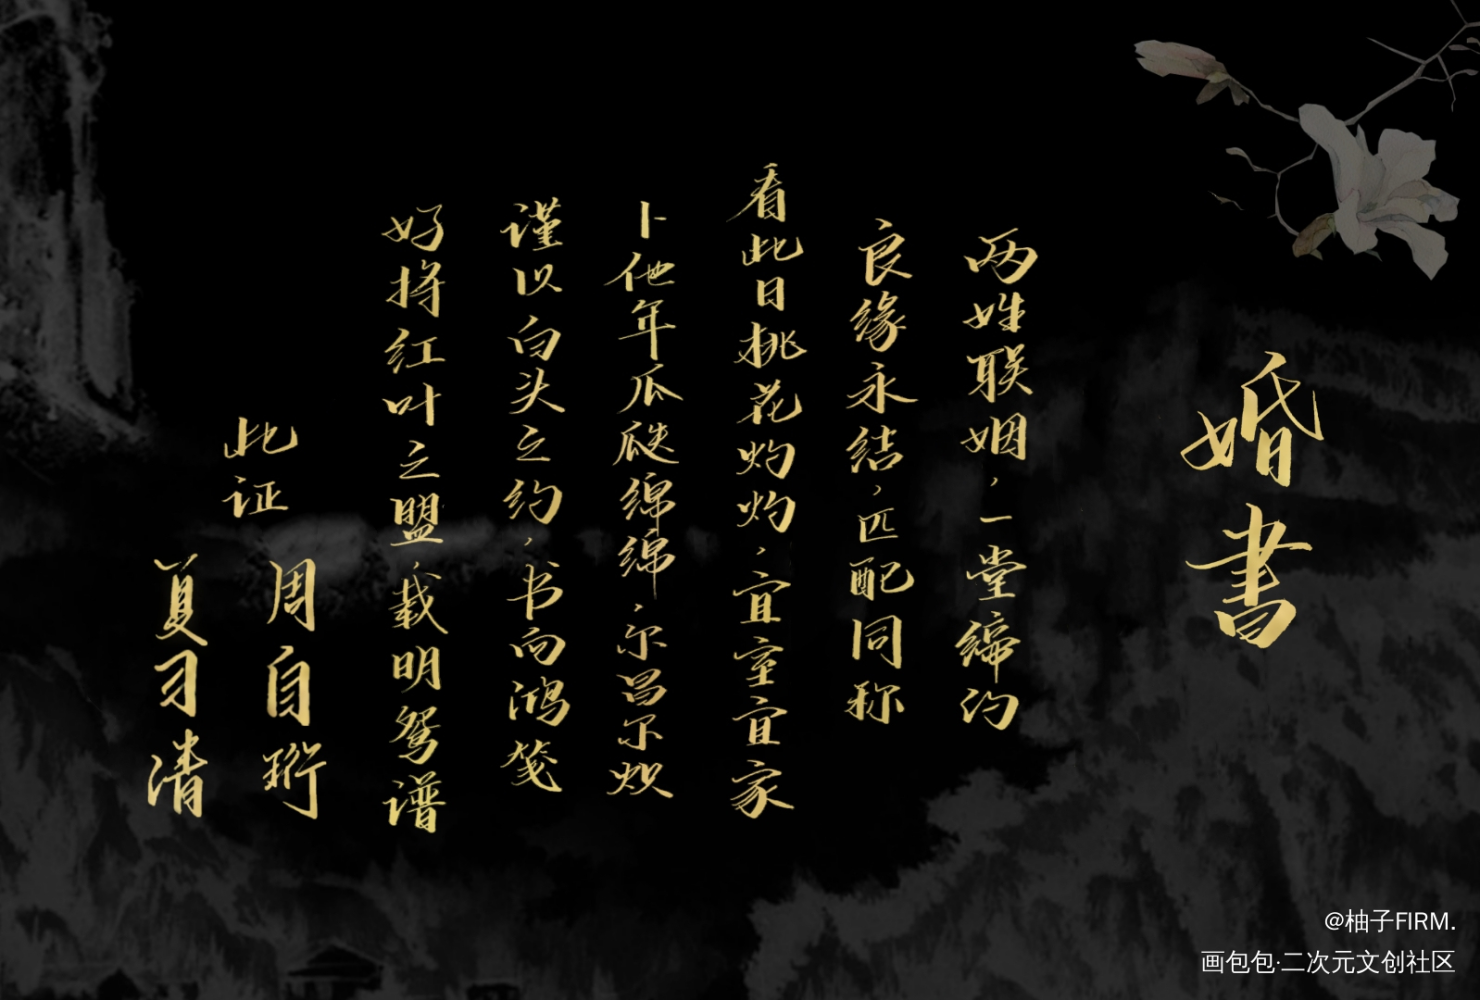 婚書
两姓联姻，一堂缔约
良缘永结，匹配同称
看此日桃花灼灼，宜室宜家
卜他年瓜瓞绵绵，尔昌尔炽
谨以白头之约，书向鸿笺
好将红叶之盟，载明鸳谱
此证
周自珩
夏习清
@柚子FIRM.
画包包·二次元文创社区